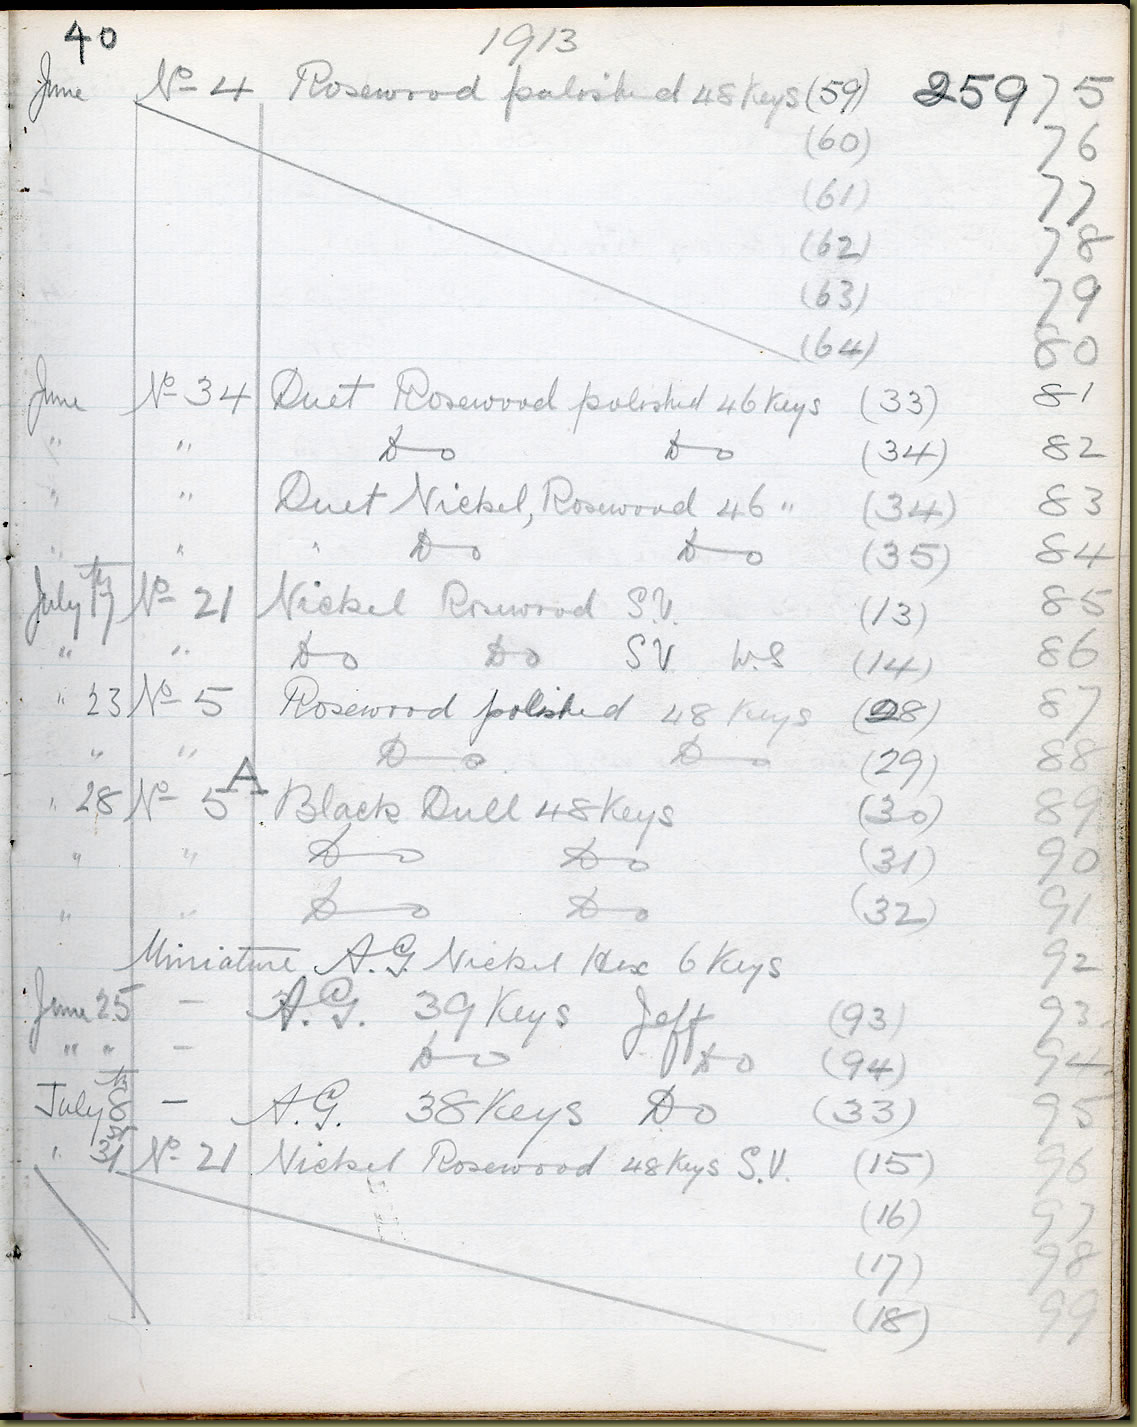 40 1913
June No 4 Rosewood polished 48 Keys (59) 25975
(60) 76
(61) 77
(62) 78
(63) 79
(64) 80
June No 34 Duet Rosewood polished 46 Keys (33) 81
" " Do Do (34) 82
" " Duet Nickel, Rosewood 46 " (34) 83
" " " Do Do (35) 84
July 17th No 21 Nickel Rosewood S.V. (13) 85
" " Do Do S.V. W.S (14) 86
" 23 No 5 Rosewood polished 48 Keys (28) 87
" " Do Do (29) 88
" 28 No 5A Black Dull 48 Keys (30) 89
" " Do Do (31) 90
" " Do Do (32) 91
Miniature A.G. Nickel Hex 6 Keys 92
June 25 - A.G. 39 Keys Jeff (93) 93
" " - Do Do (94) 94
July 8th - A.G. 38 Keys Do (33) 95
" 31st No 21 Nickel Rosewood 48 Keys S.V. (15) 96
(16) 97
(17) 98
(18) 99